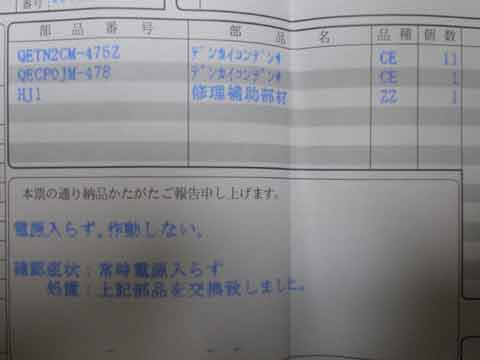 番号
部品番号 部品名 品種 個数
QETN2CM-475Z デンカイコンデンサ CE 11
QECP0JM-478 デンカイコンデンサ CE 1
HJ1 修理補助部材 ZZ 1
本票の通り納品かたがたご報告申し上げます。
電源入らず。作動しない。
確認症状：常時電源入らず
処置：上記部品を交換致しました。